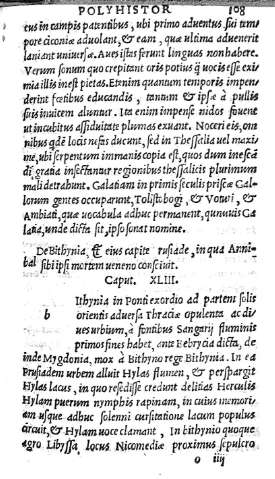 POLYHISTOR 108
eus in campis patentibus, ubi primo aduentus sui tem
pore ciconiæ aduolant, & eam, quæ ultima aduenerit
laniant uniuersæ. Aues istas ferunt linguas non habere.
Verum sonum quo crepitant oris potius q̃ uocis esse. exi-
mia illis inest pietas. Etenim quantum temporis impen-
derint fœtibus educandis, tantum & ipsæ à pullis
suis inuicem aluntur. Ita enim impense nidos fouent
ut incubitus assiduitate plumas exuant. Noceri eis, om
nibus qdẽ locis nefas ducunt, sed in Thessalia uel maxi
me, ubi serpentum immanis copia est, quos dum inescã
di gratia insectantur regionibus thessalicis plurimum
mali detrahunt. Galatiam in primis seculis priscæ Gal
lorum gentes occuparunt, Tolistobogi, & Voturi, &
Ambiati, quæ uocabula adhuc permanent, quanuis Ga
latia, unde dicta sit, ipso sonat nomine.
De Bithynia, & eius capite rusiade, in qua Anni-
bal sibi ipsi mortem ueneno consciuit.
Caput. XLIII.
b Ithynia in Ponti exordio ad partem solis
orientis aduersa Thraciæ opulenta ac di
ues urbium, à fontibus Sangarij fluminis
primos fines habet, ante Bebrycia dicta, de
inde Mygdonia, mox à Bithyno rege Bithynia. In ea
Prusiadem urbem alluit Hylas flumen, & perspargit
Hylas lacus, in quo resedisse credunt delitias Herculis
Hylam puerum nymphis rapinam, in cuius memori
am usque adhuc solenni cursitatione lacum populus
circuit, & Hylam uoce clamant, In bithynio quoque
agro Libyssa locus Nicomediæ proximus sepulcro
o iiij